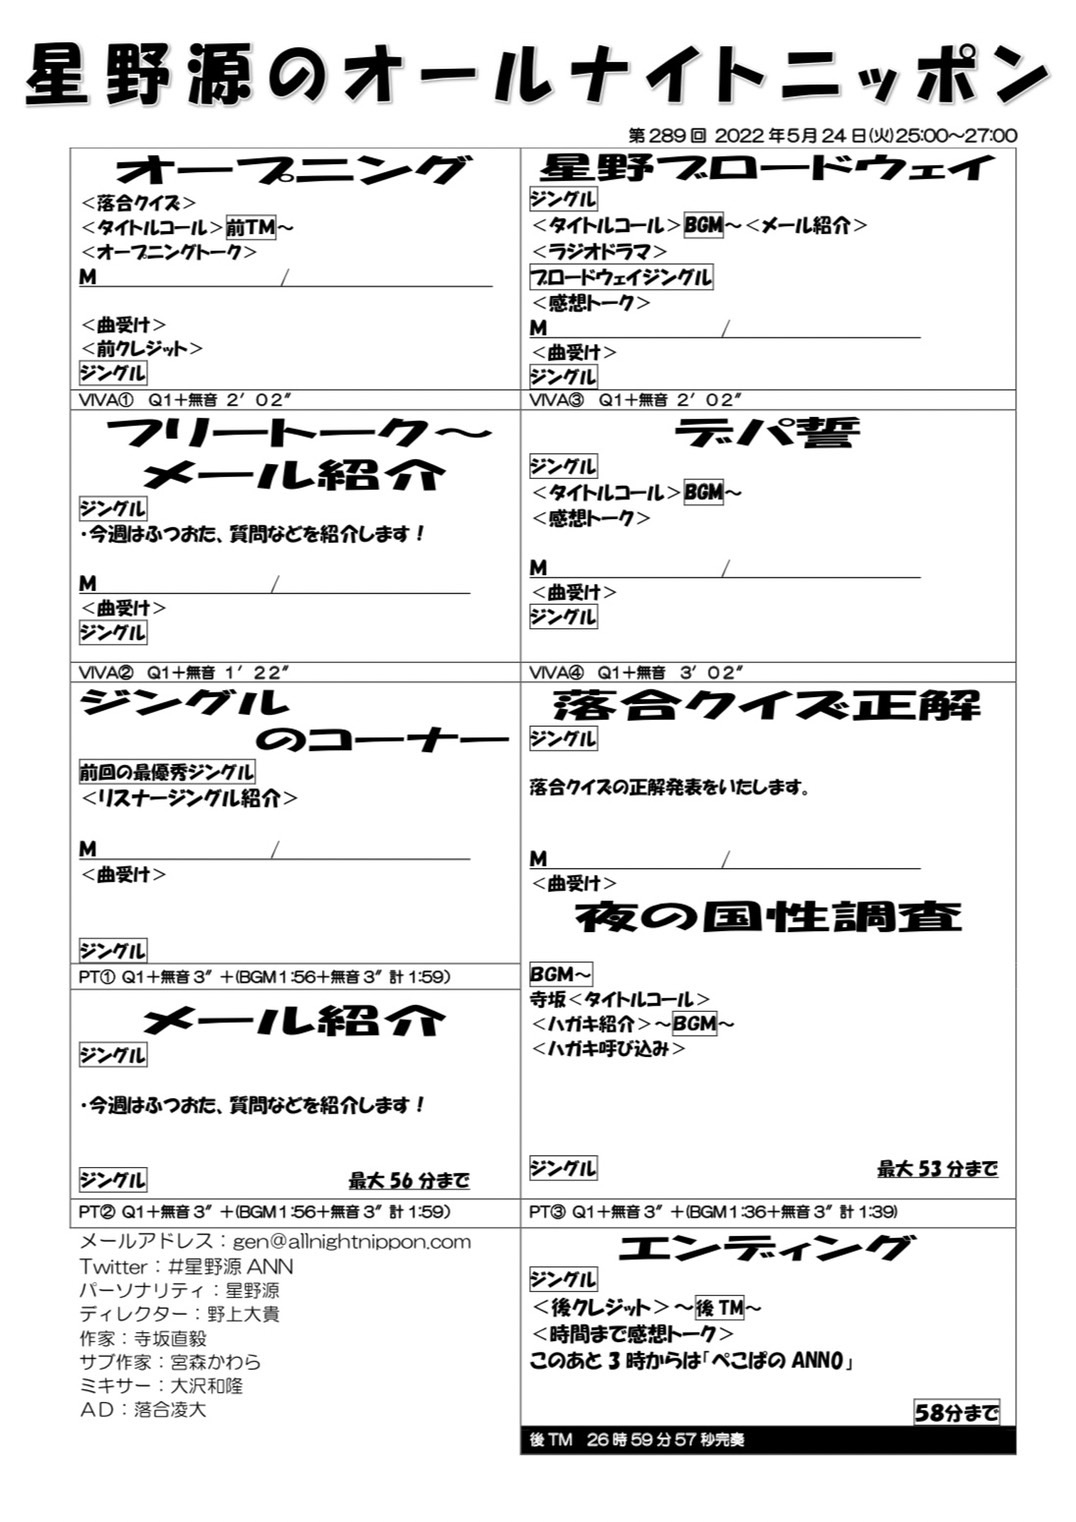 星野源のオールナイトニッポン
第289回 2022年5月24日(火)25:00~27:00
オープニング
<落合クイズ>
<タイトルコール>前TM~
<オープニングトーク>
M /
<曲受け>
<前クレジット>
ジングル
VIVA① Q1+無音 2’02”
フリートーク~
メール紹介
ジングル
・今週はふつおた、質問などを紹介します!
M /
<曲受け>
ジングル
VIVA② Q1+無音 1’22”
ジングル
のコーナー
前回の最優秀ジングル
<リスナージングル紹介>
M /
<曲受け>
ジングル
PT① Q1+無音3”+(BGM1:56+無音3”計1:59)
メール紹介
ジングル
・今週はふつおた、質問などを紹介します!
ジングル 最大56分まで
PT② Q1+無音3”+(BGM1:56+無音3”計1:59)
メールアドレス:gen@allnightnippon.com
Twitter:#星野源ANN
パーソナリティ:星野源
ディレクター:野上大貴
作家:寺坂直毅
サブ作家:宮森かわら
ミキサー:大沢和隆
AD:落合凌大
星野ブロードウェイ
ジングル
<タイトルコール>BGM~<メール紹介>
<ラジオドラマ>
ブロードウェイジングル
<感想トーク>
M /
<曲受け>
ジングル
VIVA③ Q1+無音 2’02”
デパ誓
ジングル
<タイトルコール>BGM~
<感想トーク>
M /
<曲受け>
ジングル
VIVA④ Q1+無音 3’02”
落合クイズ正解
ジングル
落合クイズの正解発表をいたします。
M /
<曲受け>
夜の国性調査
BGM~
寺坂<タイトルコール>
<ハガキ紹介>~BGM~
<ハガキ呼び込み>
ジングル 最大53分まで
PT③ Q1+無音3”+(BGM1:36+無音3”計1:39)
エンディング
ジングル
<後クレジット>~後TM~
<時間まで感想トーク>
このあと3時からは「ぺこぱのANN0」
58分まで
後TM 26時59分57秒完奏